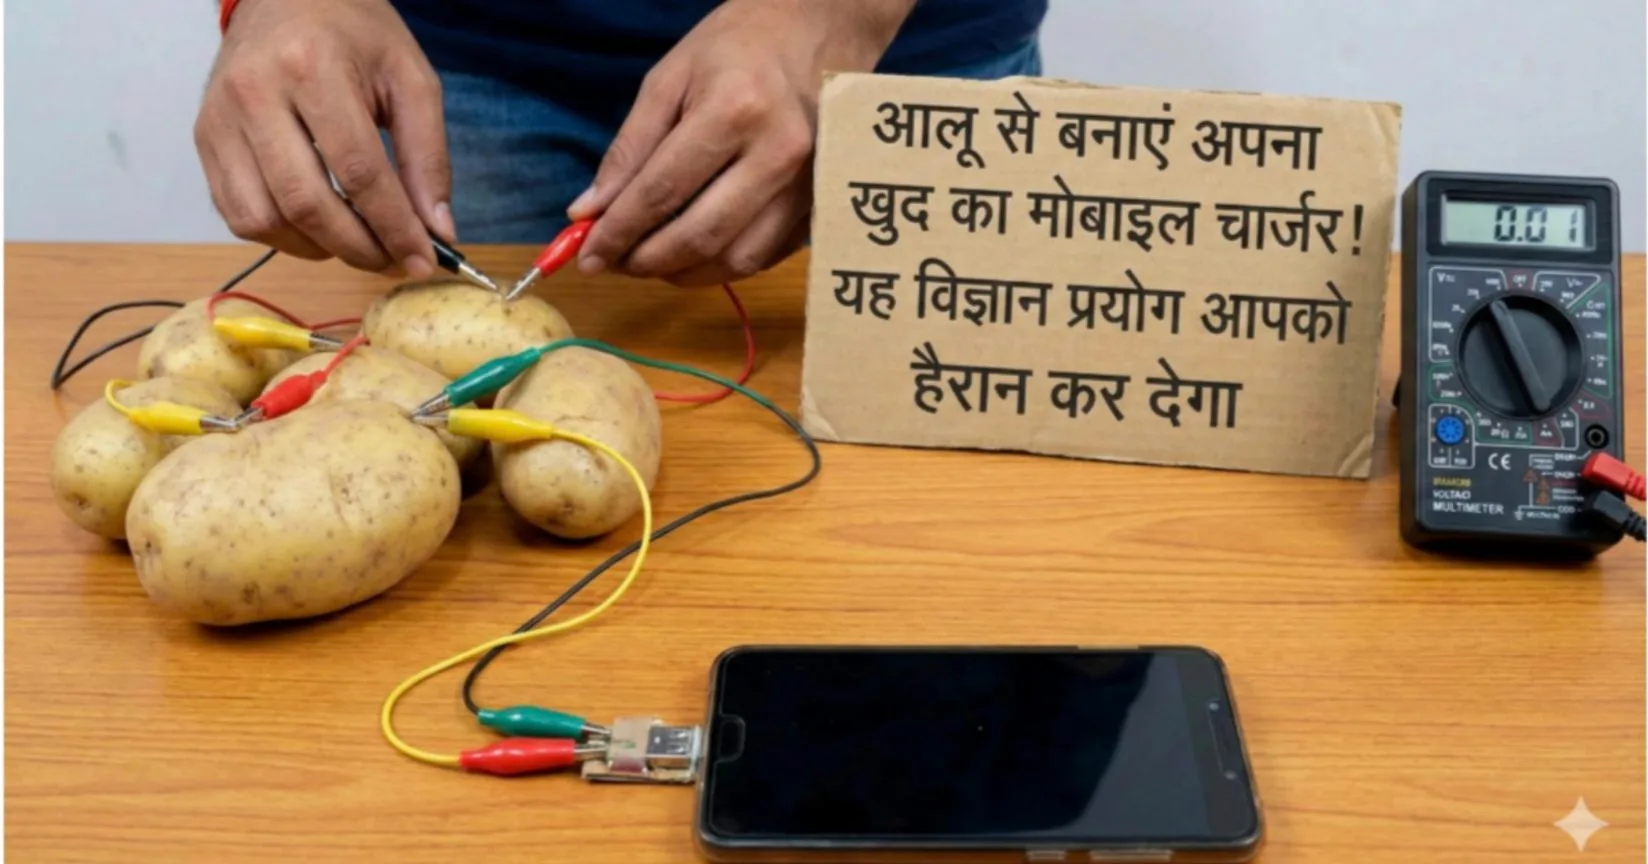 आलू से बनाएं अपना
खुद का मोबाइल चार्जर!
यह विज्ञान प्रयोग आपको
हैरान कर देगा
0.01
CE
MULTIMETER